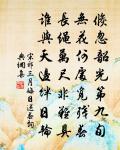 倏忽韶光第九旬
無花何處覓殘春
長繩萬尺非難具
誰與天邊絆日輪
宋祁三月晦日送春詞